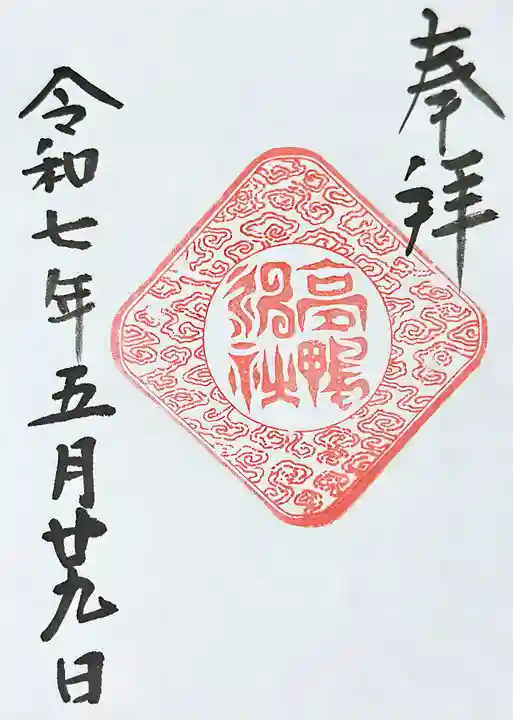 奉拝
高鴨
神社
令和七年五月廿九日